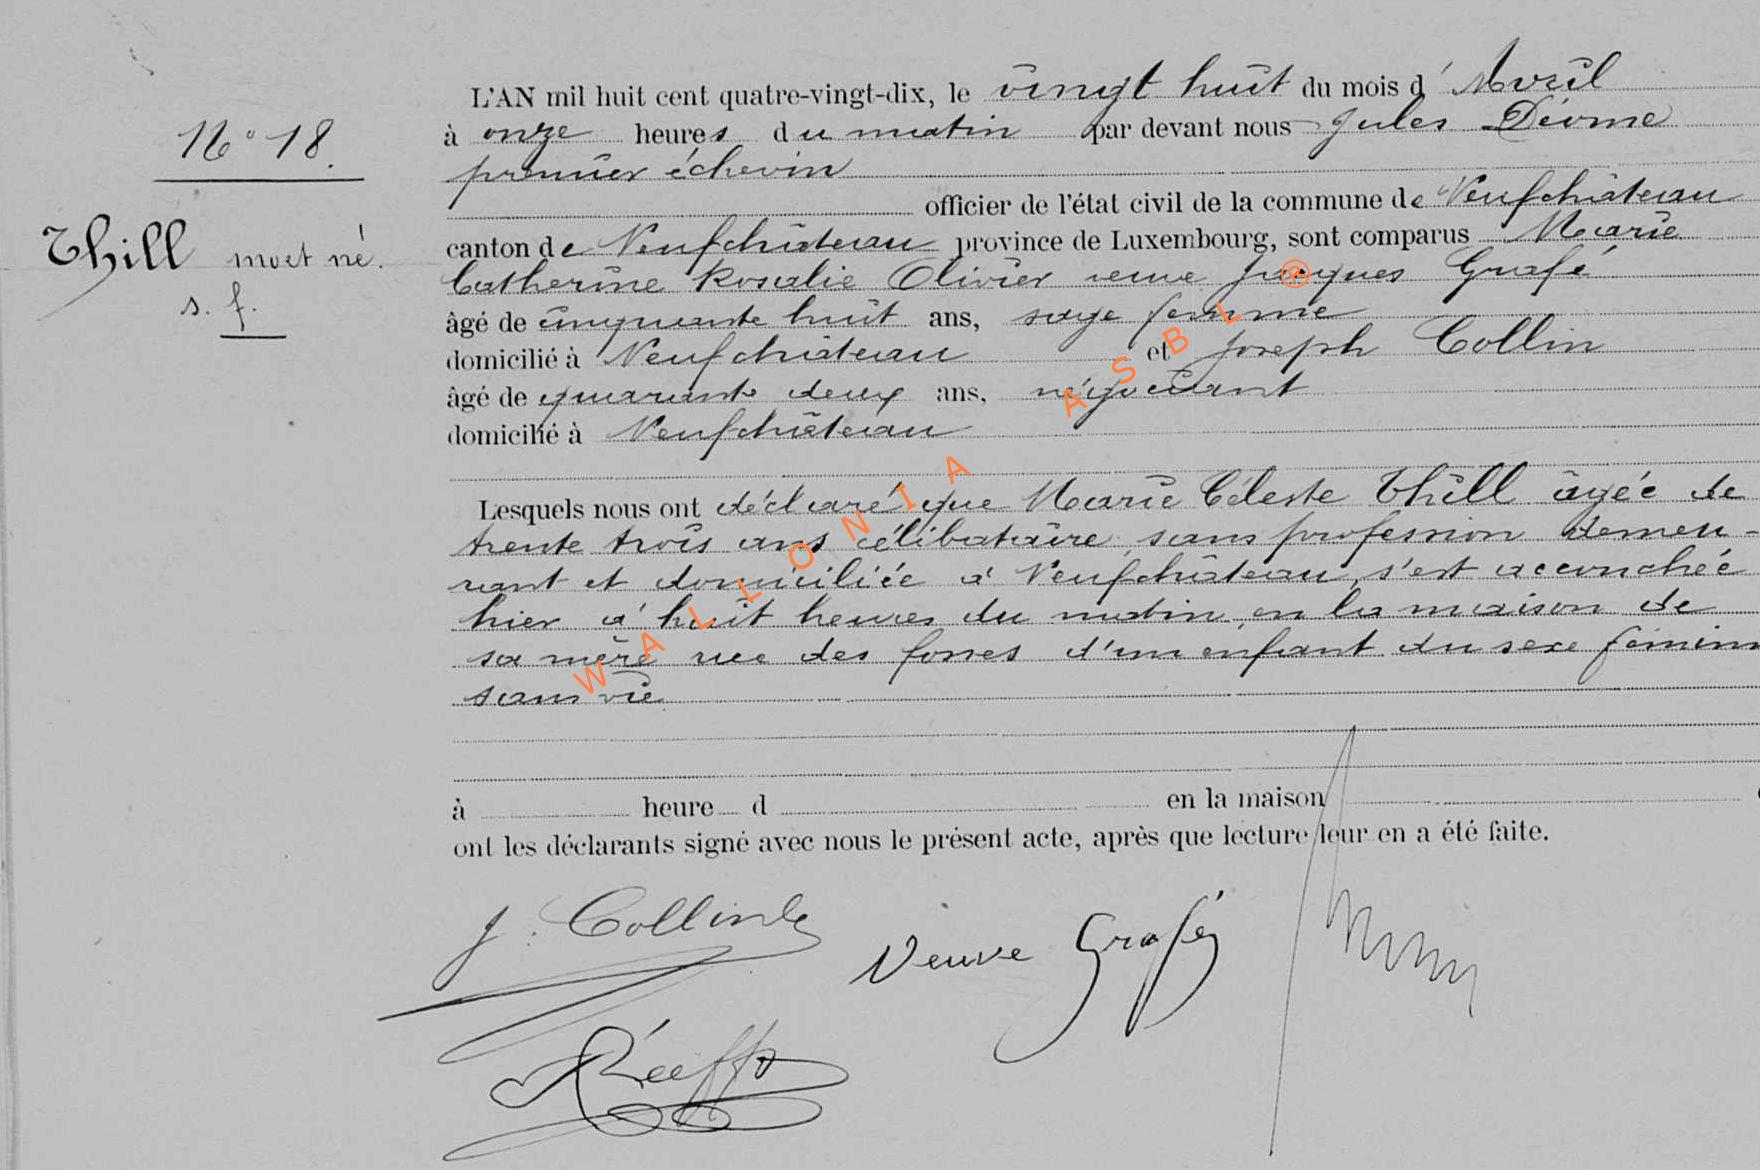 N° 18.
Thill mort né.
s. f.
L'AN mil huit cent quatre-vingt-dix, le vingt huit du mois d' Avril
à onze heures du matin par devant nous Jules
premier échevin
officier de l'état civil de la commune de Neufchâteau
canton de Neufchâteau province de Luxembourg, sont comparus Marie
Catherine Rosalie Olivier veuve Jacques Grafé
âgé de cinquante huit ans, sage femme
domicilié à Neufchâteau et Joseph Collin
âgé de quarante deux ans, négociant
domicilié à Neufchâteau
Lesquels nous ont déclaré que Marie Céleste Thill âgée de
trente trois ans célibataire, sans profession demeu-
rant et domiciliée à Neufchâteau, s'est accouchée
hier à huit heures du matin, en la maison de
sa mère rue des fosses d'un enfant du sexe féminin
sans vie.
à heure d en la maison
ont les déclarants signé avec nous le présent acte, après que lecture leur en a été faite.
J. Collin
Veuve Grafé
WALLONIA ASBL ®